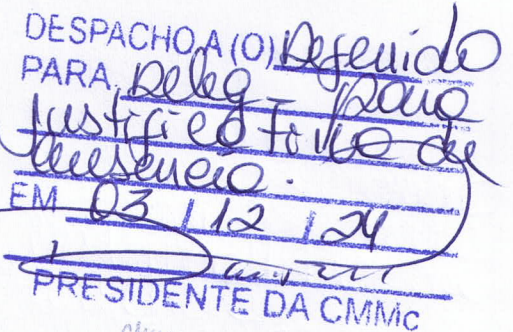 DESPACHO A (O) Deferido
PARA Deleg para
justificativa de
ausência.
EM 03 / 12 / 24
PRESIDENTE DA CMMc